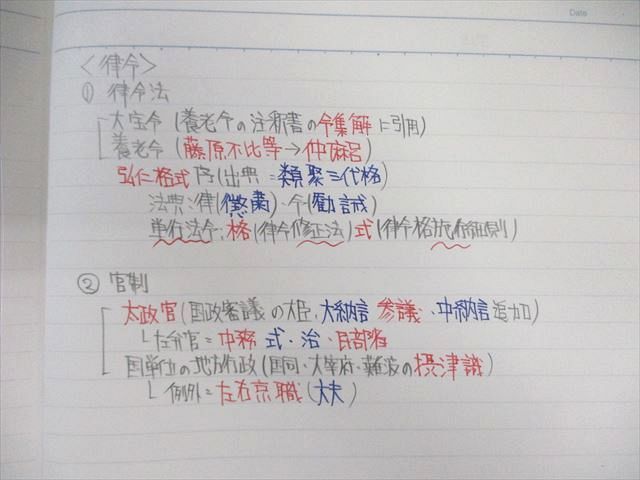 Date
<律令>
① 律令法
大宝令(養老令の注釈書の令集解に引用)
養老令(藤原不比等→仲麻呂)
弘仁格式序(出典=類聚三代格)
法典:律(懲粛)・令(勧誡)
単行法令:格(律令修正法)式(律令格施行細則)
② 官制
太政官(国政審議の大臣、大納言 参議・中納言追加)
└左弁官=中務 式・治・民部省
国単位の地方行政(国司・大宰府・難波の摂津識)
└例外=左右京職(大夫)